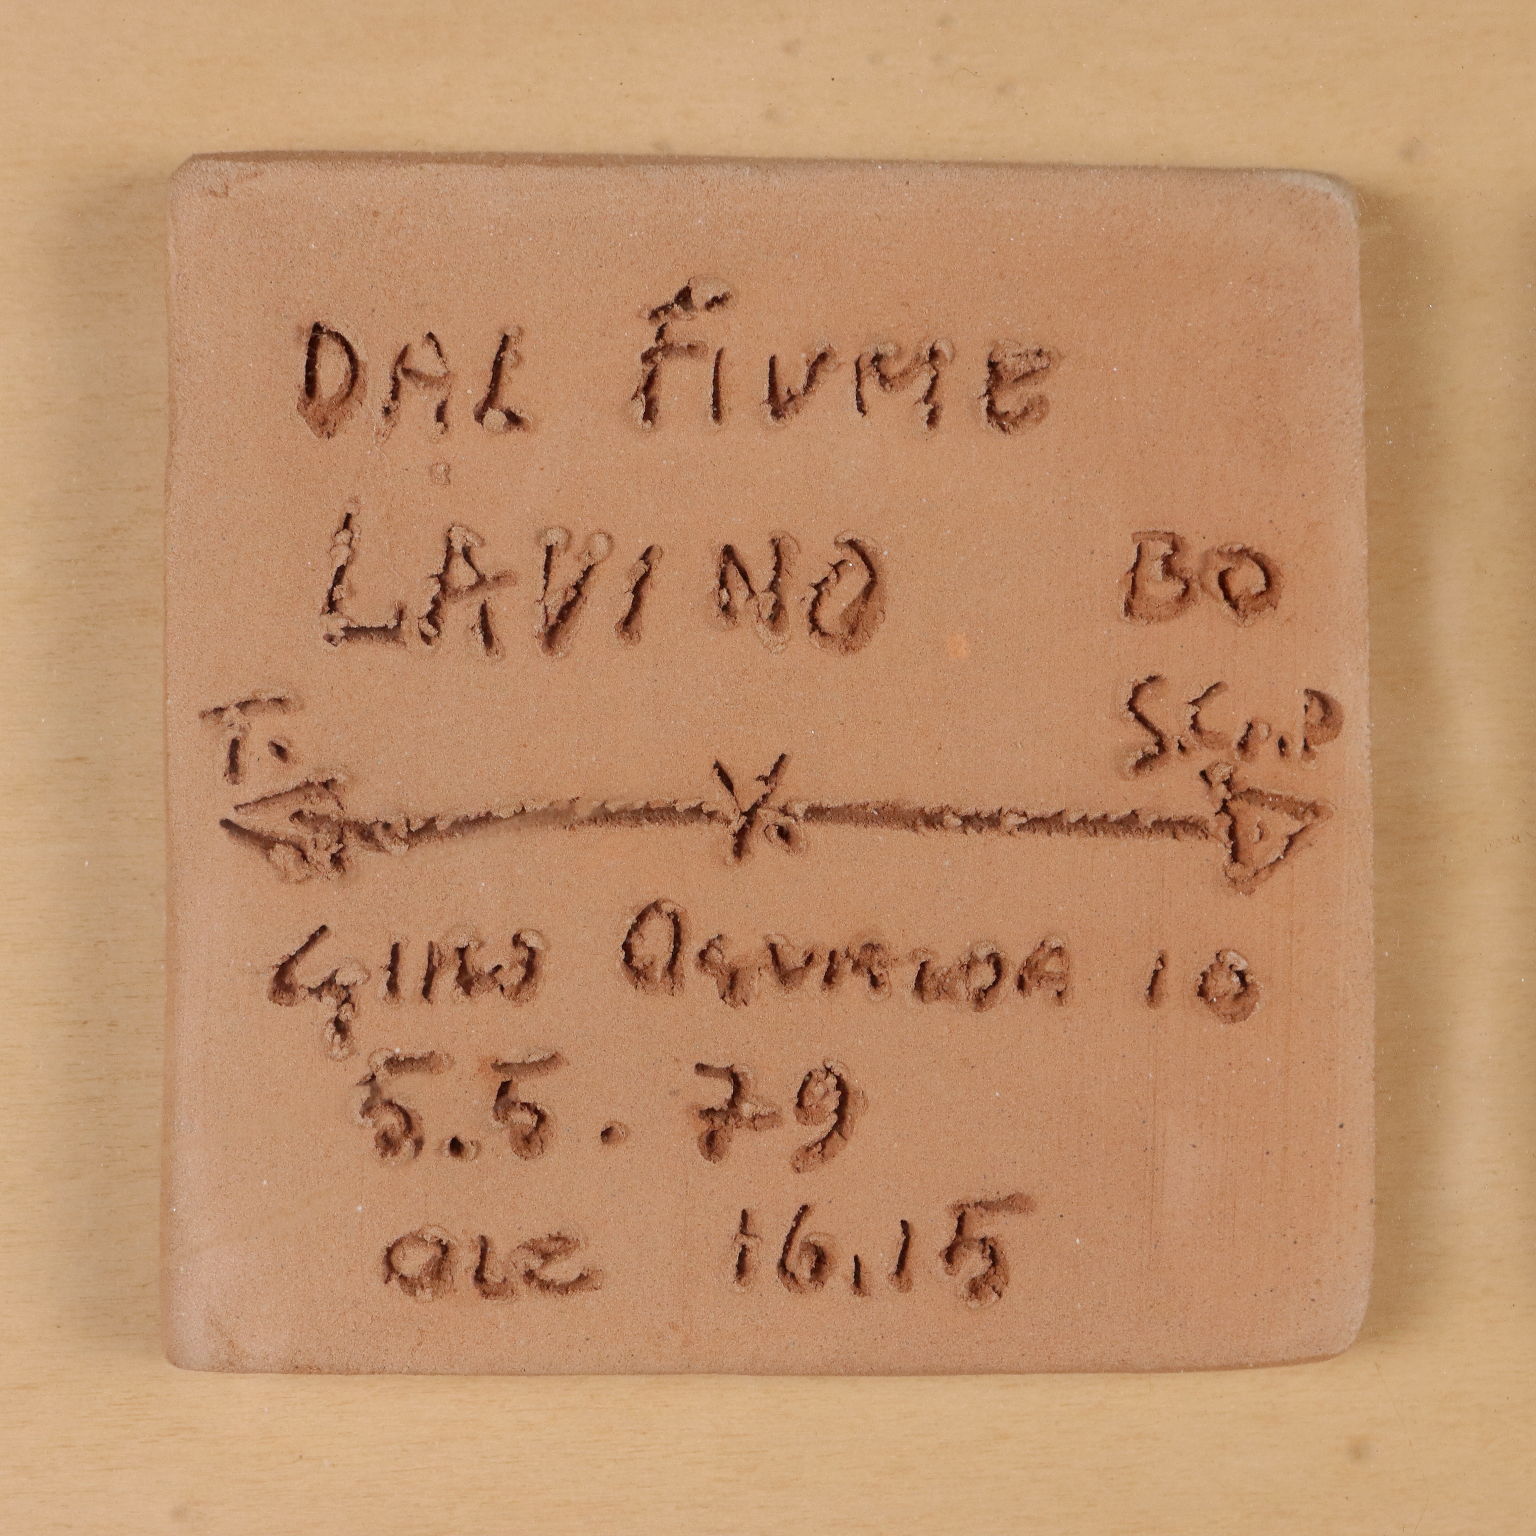 DAL FIUME
LAVINO BO
T. S.Cr.P
GINO 10
5.5.79
ore 16,15